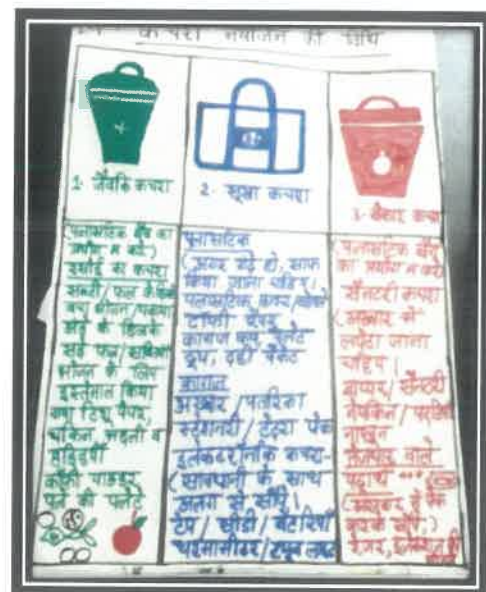 कचरा नियोजन की विधि
1- जैविक कचरा
(पलासटिक बैग का
प्रयोग न करे)
रसोई का कचरा
सब्जी / फल के छिलके
बचा भोजन / पकाया
अंडे के छिलके
सड़े फल / सब्जियाँ
भोजन के लिए
इस्तेमाल किया
गया टिशू पेपर,
चिकन, मछली व
हड्डियाँ
कॉफी पाउडर
पत्ते की पलेटे
2- सूखा कचरा
पलासटिक
(अगर गंदे हो, साफ
किया जाना चाहिए)
पलासटिक कवर / बोतले
टॉफी रेपर
कागज कप पलेट
दूध, दही पैकेट
कागज
अखबार / पतरिका
स्टेशनरी / टेट्रा पेक
इलेक्टरॉनिक कचरा-
(सावधानी के साथ
अलग से सौंपे)
टेप / सीडी / बैटरियाँ
थरमामीटर / टयूब लाइट
3- बेकार कचरा
(पलासटिक बैग
का प्रयोग न करे)
सैनटरी कचरा
(अखबार में
लपेटा जाना
चाहिए)
डायपर / सैनटरी
नेपकिन / पट्टियाँ
नाखून
तेजधार वाले
पदार्थ
करके सौंपे,)
रेजर,